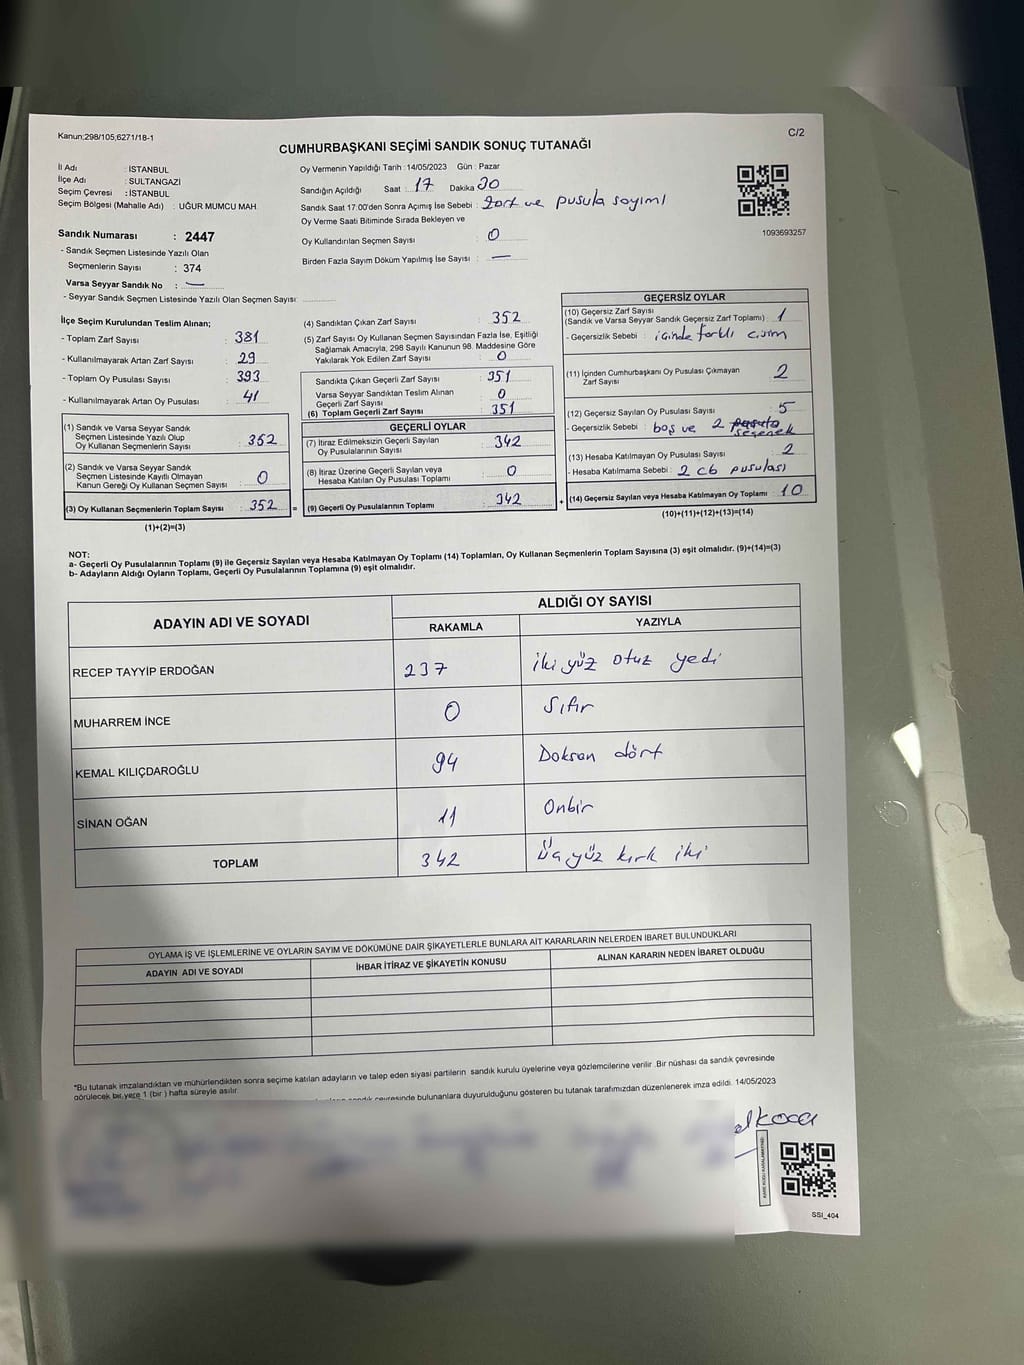 Kanun;298/105,6271/18-1
C/2
CUMHURBAŞKANI SEÇİMİ SANDIK SONUÇ TUTANAĞI
İl Adı : İSTANBUL
İlçe Adı : SULTANGAZİ
Seçim Çevresi : İSTANBUL
Seçim Bölgesi (Mahalle Adı) : UĞUR MUMCU MAH.
Sandık Numarası : 2447
- Sandık Seçmen Listesinde Yazılı Olan
Seçmenlerin Sayısı : 374
Varsa Seyyar Sandık No : —
- Seyyar Sandık Seçmen Listesinde Yazılı Olan Seçmen Sayısı:
Oy Vermenin Yapıldığı Tarih :14/05/2023 Gün : Pazar
Sandığın Açıldığı Saat : 17 Dakika 30
Sandık Saat 17:00'den Sonra Açımış İse Sebebi : Zarf ve pusula sayımı
Oy Verme Saati Bitiminde Sırada Bekleyen ve
Oy Kullandırılan Seçmen Sayısı : 0
Birden Fazla Sayım Döküm Yapılmış İse Sayısı : —
1093693257
İlçe Seçim Kurulundan Teslim Alınan;
- Toplam Zarf Sayısı : 381
- Kullanılmayarak Artan Zarf Sayısı : 29
- Toplam Oy Pusulası Sayısı : 393
- Kullanılmayarak Artan Oy Pusulası : 41
(1) Sandık ve Varsa Seyyar Sandık
Seçmen Listesinde Yazılı Olup
Oy Kullanan Seçmenlerin Sayısı : 352
(2) Sandık ve Varsa Seyyar Sandık
Seçmen Listesinde Kayıtlı Olmayan
Kanun Gereği Oy Kullanan Seçmen Sayısı : 0
(3) Oy Kullanan Seçmenlerin Toplam Sayısı : 352
(1)+(2)=(3)
=
(4) Sandıktan Çıkan Zarf Sayısı : 352
(5) Zarf Sayısı Oy Kullanan Seçmen Sayısından Fazla İse, Eşitliği
Sağlamak Amacıyla, 298 Sayılı Kanunun 98. Maddesine Göre
Yakılarak Yok Edilen Zarf Sayısı : 0
Sandıkta Çıkan Geçerli Zarf Sayısı : 351
Varsa Seyyar Sandıktan Teslim Alınan
Geçerli Zarf Sayısı : 0
(6) Toplam Geçerli Zarf Sayısı : 351
GEÇERLİ OYLAR
(7) İtiraz Edilmeksizin Geçerli Sayılan
Oy Pusulalarının Sayısı : 342
(8) İtiraz Üzerine Geçerli Sayılan veya
Hesaba Katılan Oy Pusulası Toplamı : 0
(9) Geçerli Oy Pusulalarının Toplamı : 342
+
GEÇERSİZ OYLAR
(10) Geçersiz Zarf Sayısı
(Sandık ve Varsa Seyyar Sandık Geçersiz Zarf Toplamı) : 1
- Geçersizlik Sebebi : içinde farklı cisim
(11) İçinden Cumhurbaşkanı Oy Pusulası Çıkmayan
Zarf Sayısı : 2
(12) Geçersiz Sayılan Oy Pusulası Sayısı : 5
- Geçersizlik Sebebi : boş ve 2 pusula
seçenek
(13) Hesaba Katılmayan Oy Pusulası Sayısı : 2
- Hesaba Katılmama Sebebi : 2 cb pusulası
(14) Geçersiz Sayılan veya Hesaba Katılmayan Oy Toplamı : 10
(10)+(11)+(12)+(13)=(14)
NOT:
a- Geçerli Oy Pusulalarının Toplamı (9) ile Geçersiz Sayılan veya Hesaba Katılmayan Oy Toplamı (14) Toplamları, Oy Kullanan Seçmenlerin Toplam Sayısına (3) eşit olmalıdır. (9)+(14)=(3)
b- Adayların Aldığı Oyların Toplamı, Geçerli Oy Pusulalarının Toplamına (9) eşit olmalıdır.
ADAYIN ADI VE SOYADI
ALDIĞI OY SAYISI
RAKAMLA YAZIYLA
RECEP TAYYİP ERDOĞAN 237 iki yüz otuz yedi
MUHARREM İNCE 0 Sıfır
KEMAL KILIÇDAROĞLU 94 Doksan dört
SİNAN OĞAN 11 Onbir
TOPLAM 342 Üç yüz kırk iki
OYLAMA İŞ VE İŞLEMLERİNE VE OYLARIN SAYIM VE DÖKÜMÜNE DAİR ŞİKAYETLERLE BUNLARA AİT KARARLARIN NELERDEN İBARET BULUNDUKLARI
ADAYIN ADI VE SOYADI İHBAR İTİRAZ VE ŞİKAYETİN KONUSU ALINAN KARARIN NEDEN İBARET OLDUĞU
*Bu tutanak imzalandıktan ve mühürlendikten sonra seçime katılan adayların ve talep eden siyasi partilerin sandık kurulu üyelerine veya gözlemcilerine verilir .Bir nüshası da sandık çevresinde
görülecek bir yere 1 (bir ) hafta süreyle asılır.
sandık çevresinde bulunanlara duyurulduğunu gösteren bu tutanak tarafımızdan düzenlenerek imza edildi. 14/05/2023
SSI_404